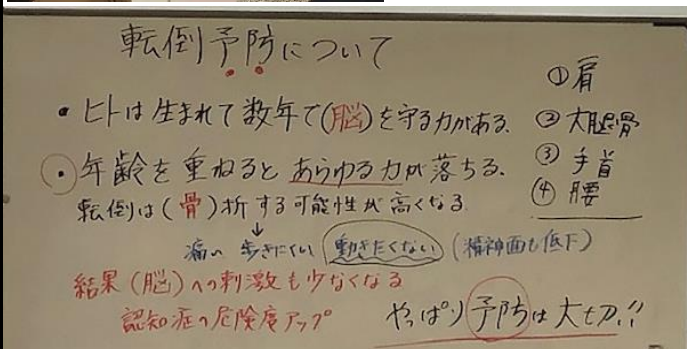 転倒予防について
・ヒトは生まれて数年で(脳)を守る力がある.
・年齢を重ねるとあらゆる力が落ちる.
転倒は(骨)折する可能性が高くなる
↓
痛い 歩きにくい 動きたくない (精神面も低下)
結果(脳)への刺激も少なくなる
認知症の危険度アップ
やっぱり予防は大切!!
①肩
②大腿骨
③手首
④腰